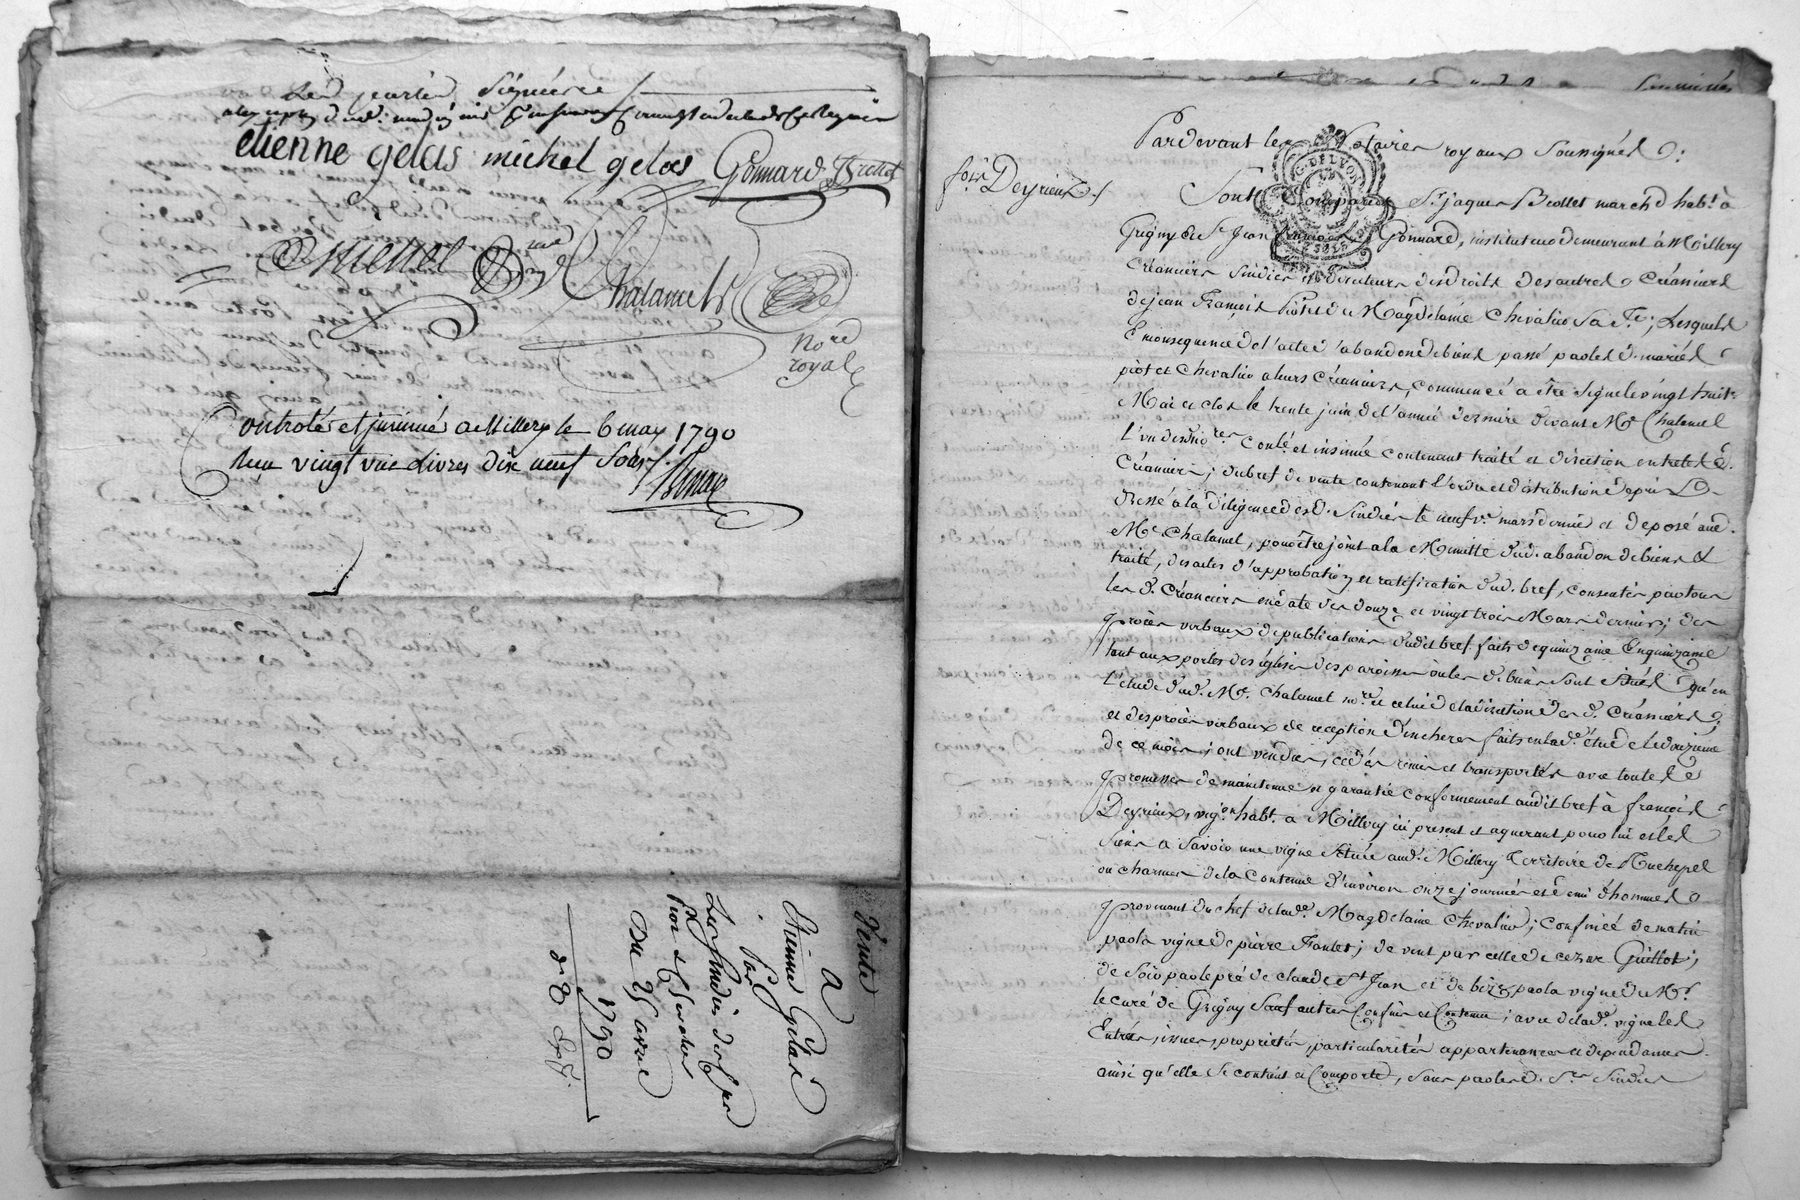 Les parties Signées
etienne gelas michel gelas Gonnard JBrellet
Chalamel
No.re
royal
Controlé et insinué a Millery le 6 may 1790
Reçu vingt une Livres dix neuf Sols
Vente
a
Etienne Gelas
Par
Les Sindics des
Piot & Chevalier
Du 25 avril
1790
Pardevant les Notaires royaux Soussignés
fois Deyrieux
G. DE LYON
Sont Comparus Sr. jaques Brollet march.d hab.t à
Grigny & Sr. Jean Gonnard, instituteur demeurant à Millery
Créanciers Sindics & directeurs des droits des autres Créanciers
de jean François Piot et de Magdelaine Chevalier Sa f.e; Lesquels
En consequence de l'acte d'abandon de biens passé par les d. mariés
piot et Chevalier a leurs Créanciers, commencé a être Signé le vingt huit
Mai et clos le trente juin de l'année derniere devant Me. Chalamel
l'un desd. no.res conlé. et insinué contenant traité et direction entre les d.
Créanciers; du bref de vente contenant l'ordre et distribution de prix
dressé a la diligence des d. Sindics le neuf mars dernier et deposé aud.
Me. Chalamel, pour être joint a la Minutte dud. abandon de biens &
traité, des actes d'approbation et ratification dud. bref, consentis par tous
les d. Créanciers en date des douze et vingt trois Mars dernier; des
procès verbaux de publications dudit bref faits de quinzaine En quinzaine
tant aux portes des églises des paroisses où les d. biens sont Situés qu'en
l'étude dud. Me. Chalamel no.re et celui de la direction des d. Créanciers
et des procès verbaux de reception d'encheres faits en lad. étude le douzieme
de ce mois; ont vendus, cédés remis et transportés avec toutes
promesses de maintenue et garantie conformement audit bref à françois
Deyrieux, vig.on hab.t a Millery ici present et aquerant pour lui et les
Siens a Savoir une vigne Située aud. Millery Territoire de
ou charmes de la Contenue d'environ onze journées et demi d'hommes
provenant du chef de lad. Magdelaine Chevalier; Confinée de matin
par la vigne de pierre; de vent par celle de cezar Guillot;
de Soir par le pré de claude St Jean et de bize par la vigne de Mr.
le curé de Grigny Sauf autres Confins et Contenue; avec de lad. vigne les
Entrées, issues, proprietés, particularités appartenances et dependances
ainsi qu'elle Se contient et Comporte, Sans par les d. Srs. Sindics